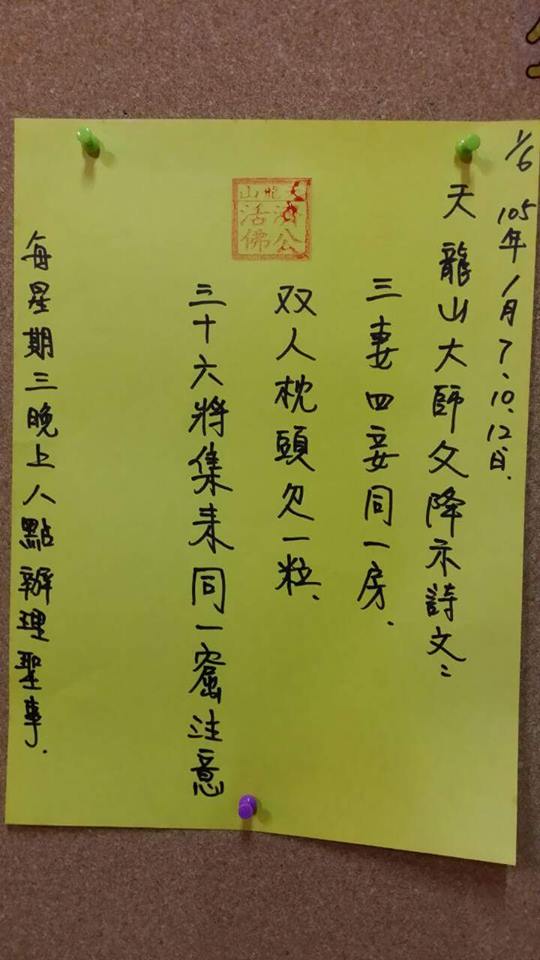 1/6
105年1月7、10、12日.
天龍山大師父降示詩文:
天龍山
濟公
活佛
三妻四妾同一房.
双人枕頭欠一粒.
三十六將集來同一窟注意
每星期三晚上八點辦理聖事.